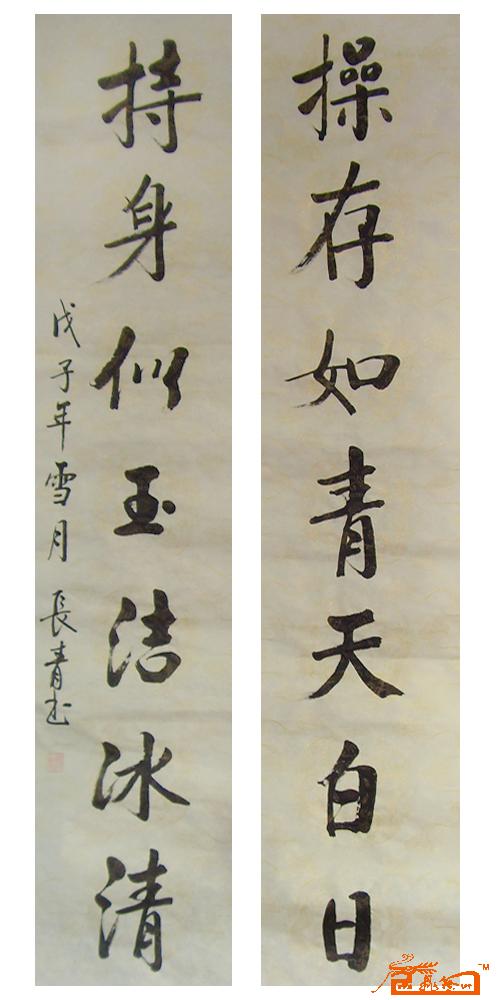 操存如青天白日
持身似玉洁冰清
戊子年雪月 長青书